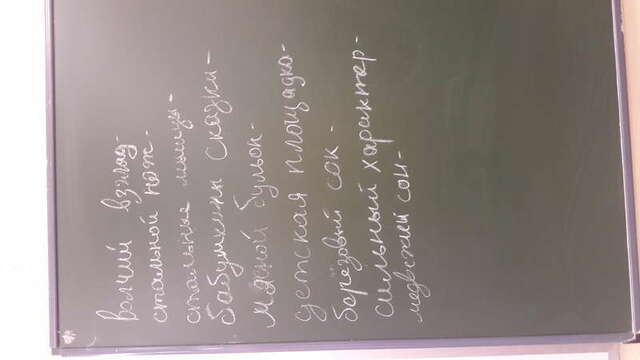 волчий взгляд-
стальной нож-
стальные мышцы-
бабушкины сказки-
мясной бульон-
детская площадка-
берёзовый сок-
сильный характер-
медвежий сон-